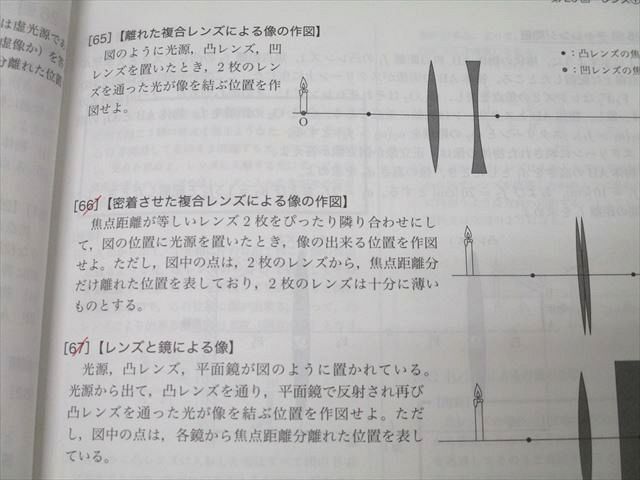 [65]【離れた複合レンズによる像の作図】
図のように光源，凸レンズ，凹
レンズを置いたとき，2枚のレン
ズを通った光が像を結ぶ位置を作
図せよ。
●：凸レンズの焦
●：凹レンズの焦
O
[66]【密着させた複合レンズによる像の作図】
焦点距離が等しいレンズ2枚をぴったり隣り合わせにし
て，図の位置に光源を置いたとき，像の出来る位置を作図
せよ。ただし，図中の点は，2枚のレンズから，焦点距離分
だけ離れた位置を表しており，2枚のレンズは十分に薄い
ものとする。
[67]【レンズと鏡による像】
光源，凸レンズ，平面鏡が図のように置かれている。
光源から出て，凸レンズを通り，平面鏡で反射され再び
凸レンズを通った光が像を結ぶ位置を作図せよ。ただ
し，図中の点は，各鏡から焦点距離分離れた位置を表し
ている。
は虚光源で
虚像か）を答
分離れた位置